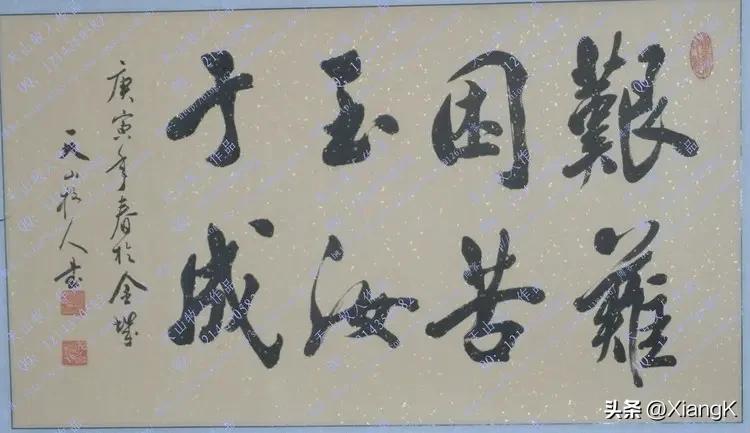 艱難
困苦
玉汝
于成
庚寅年春於金城
天山牧人書
天山牧人作品
头条 @XiangK